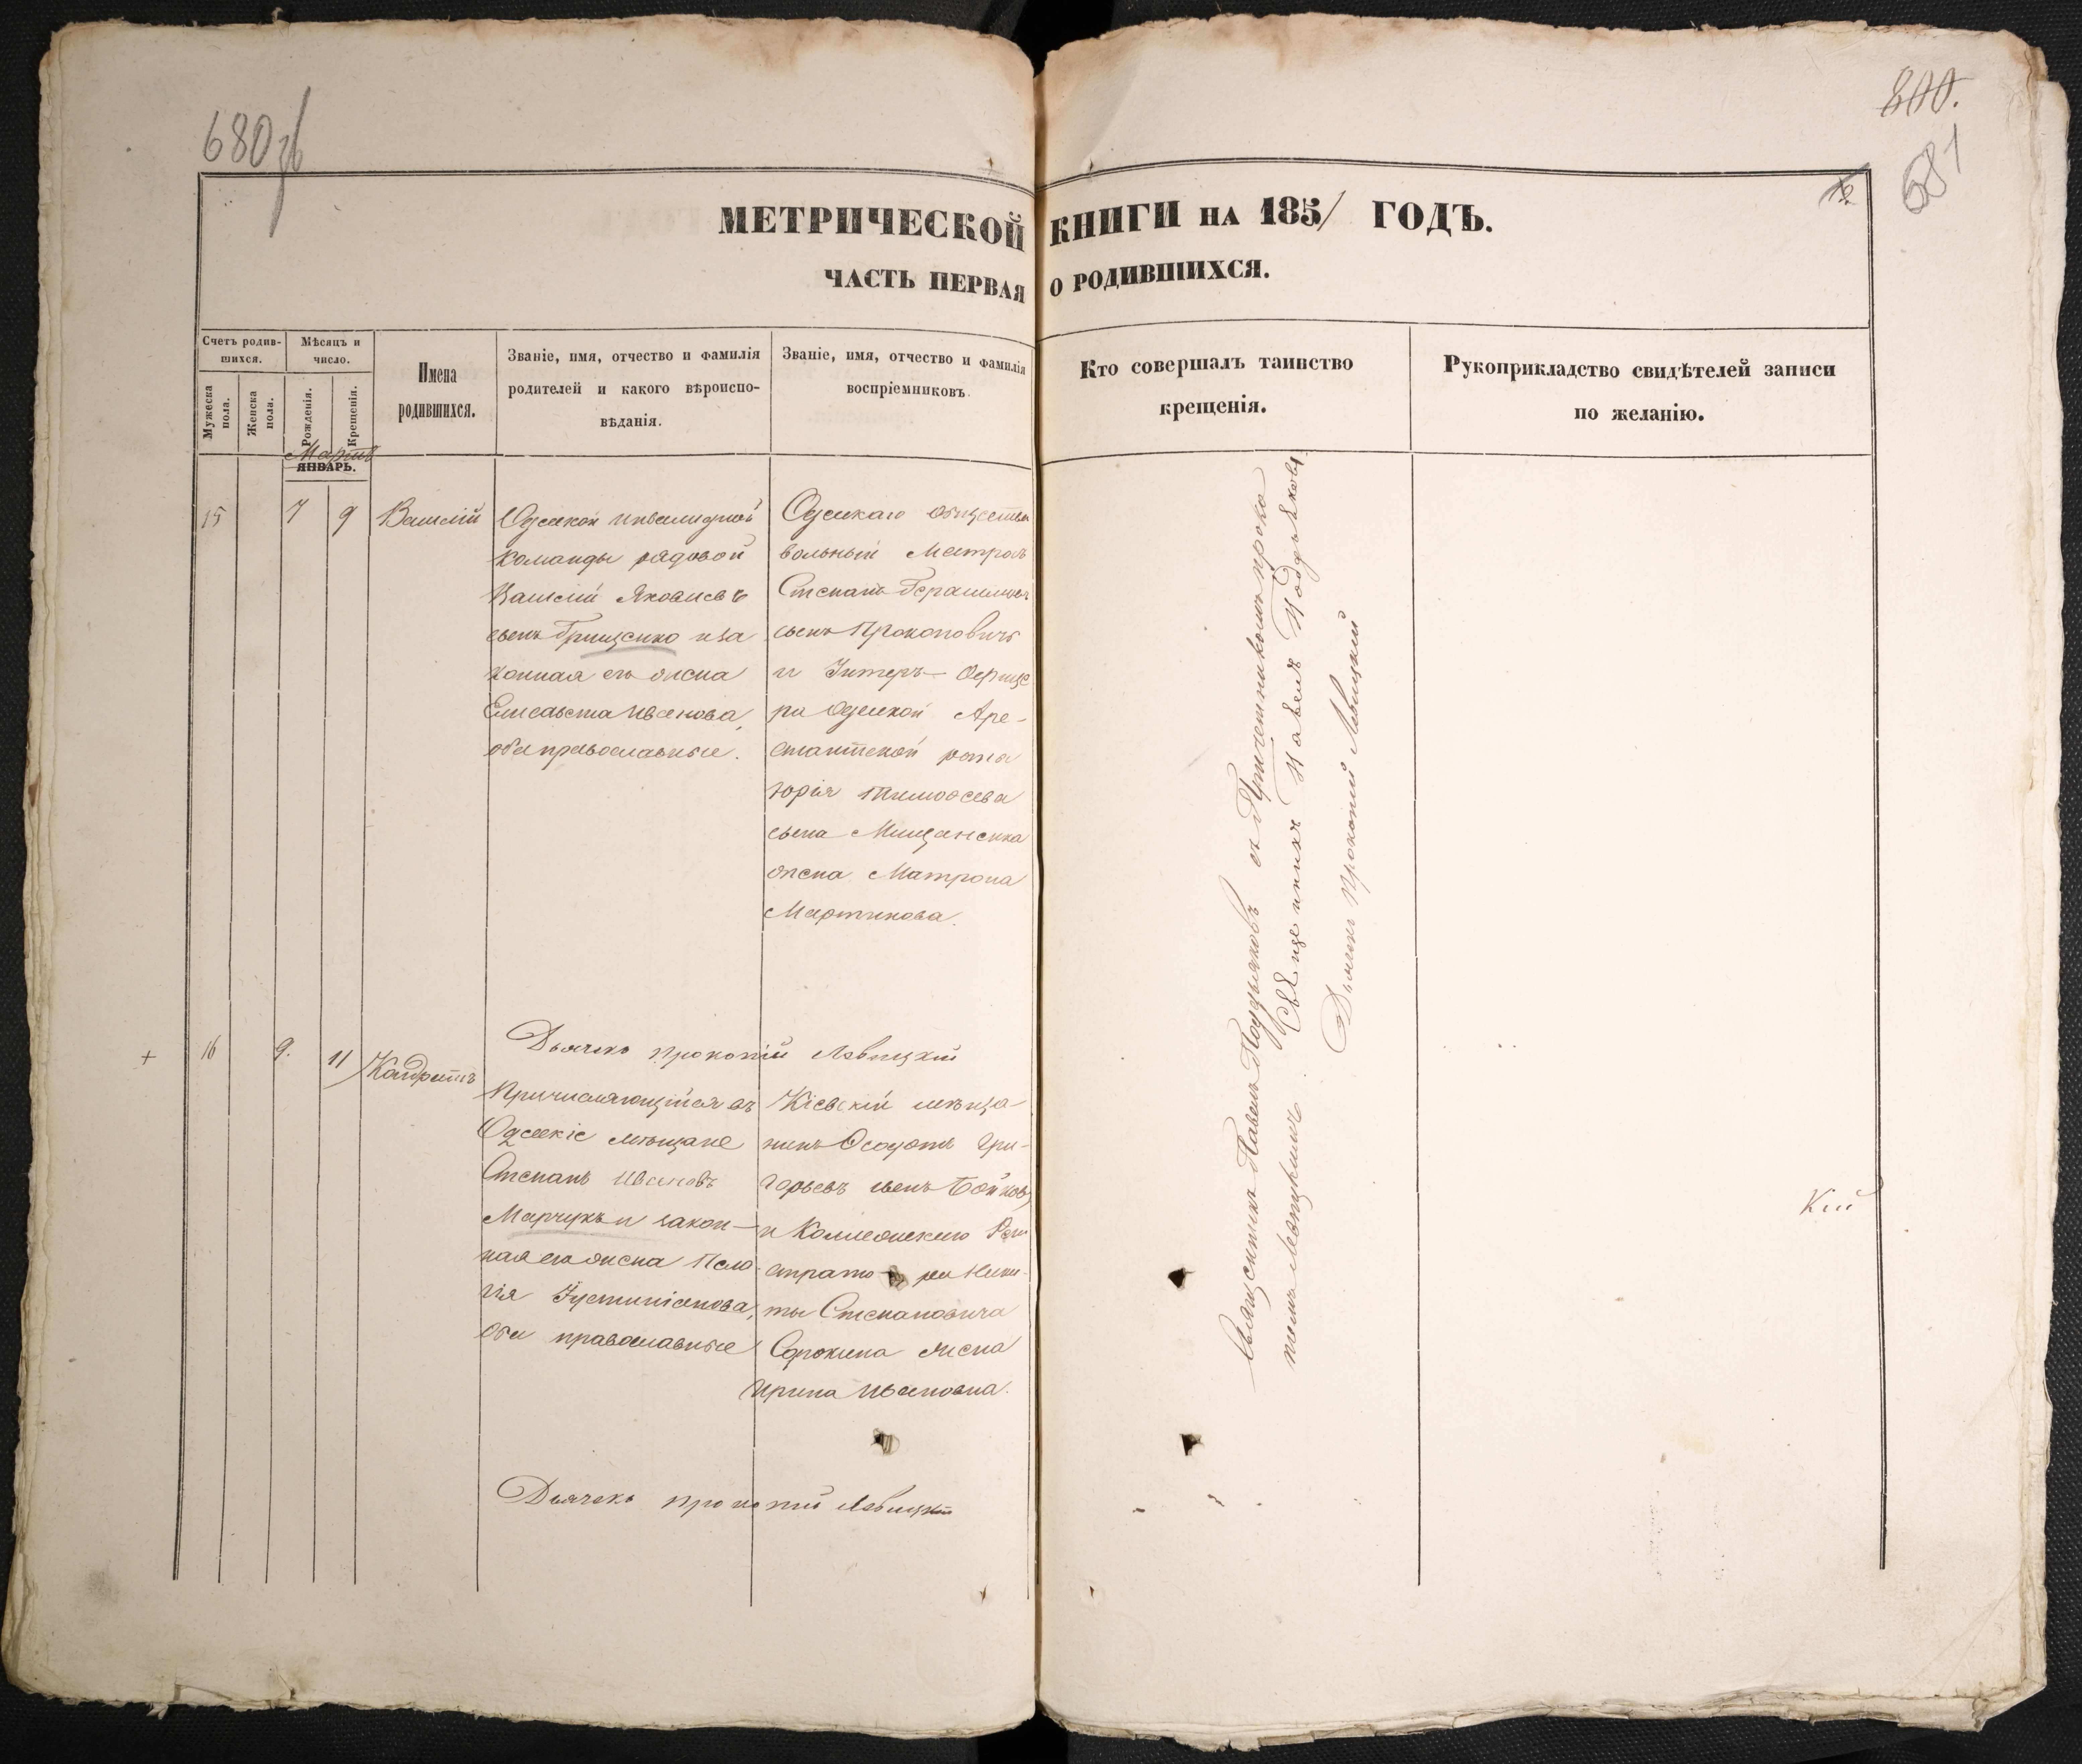 680 зв
800.
681
МЕТРИЧЕСКОЙ КНИГИ НА 1851 ГОДЪ.
ЧАСТЬ ПЕРВАЯ О РОДИВШИХСЯ.
Счетъ родив-
шихся.
Мужеска
пола.
Женска
пола.
Мѣсяцъ и
число.
Рожденія.
Крещенія.
Имена
родившихся.
Званіе, имя, отчество и фамилія
родителей и какого вѣроиспо-
вѣданія.
Званіе, имя, отчество и фамилія
воспріемниковъ.
Кто совершалъ таинство
крещенія.
Рукоприкладство свидѣтелей записи
по желанію.
Мартъ
ЯНВАРЬ.
15
7
9
Василій
Одесской инвалидной
команды рядовой
Василій Яковлевъ
сынъ Грищенко и за
конная его жена
Елисавета Иванова,
оба православные.
Одескаго общества
вольный Матросъ
Степанъ Герасимовъ
сынъ Прокоповичъ
и Унтеръ-Офице
ра Одесской Аре-
стантской роты
Юрія Тимофеева
сына Мищенка
жена Матрона
Мартинова.
Дьячекъ Прокопій Левицкій
+
16
9.
11
Кондратъ
Причисляющійся въ
Одесскіе мѣщане
Степанъ Ивановъ
Марчукъ и закон-
ная его жена Пела
гія Іустиніанова,
оба православные
Кіевскій мѣща-
нинъ Феодотъ Гри-
горьевъ сынъ Бойковъ
и Коллежскаго Реги
стратора Ники-
ты Степановича
Сорокина жена
Ирина Ивановна.
Дьячекъ Прокопій Левицкій
Священникъ Павелъ Поддьяковъ съ Причетникомъ Проко
піемъ Левицкимъ
Священникъ Павелъ Поддьяковъ
Дьячекъ Прокопій Левицкій
Кій